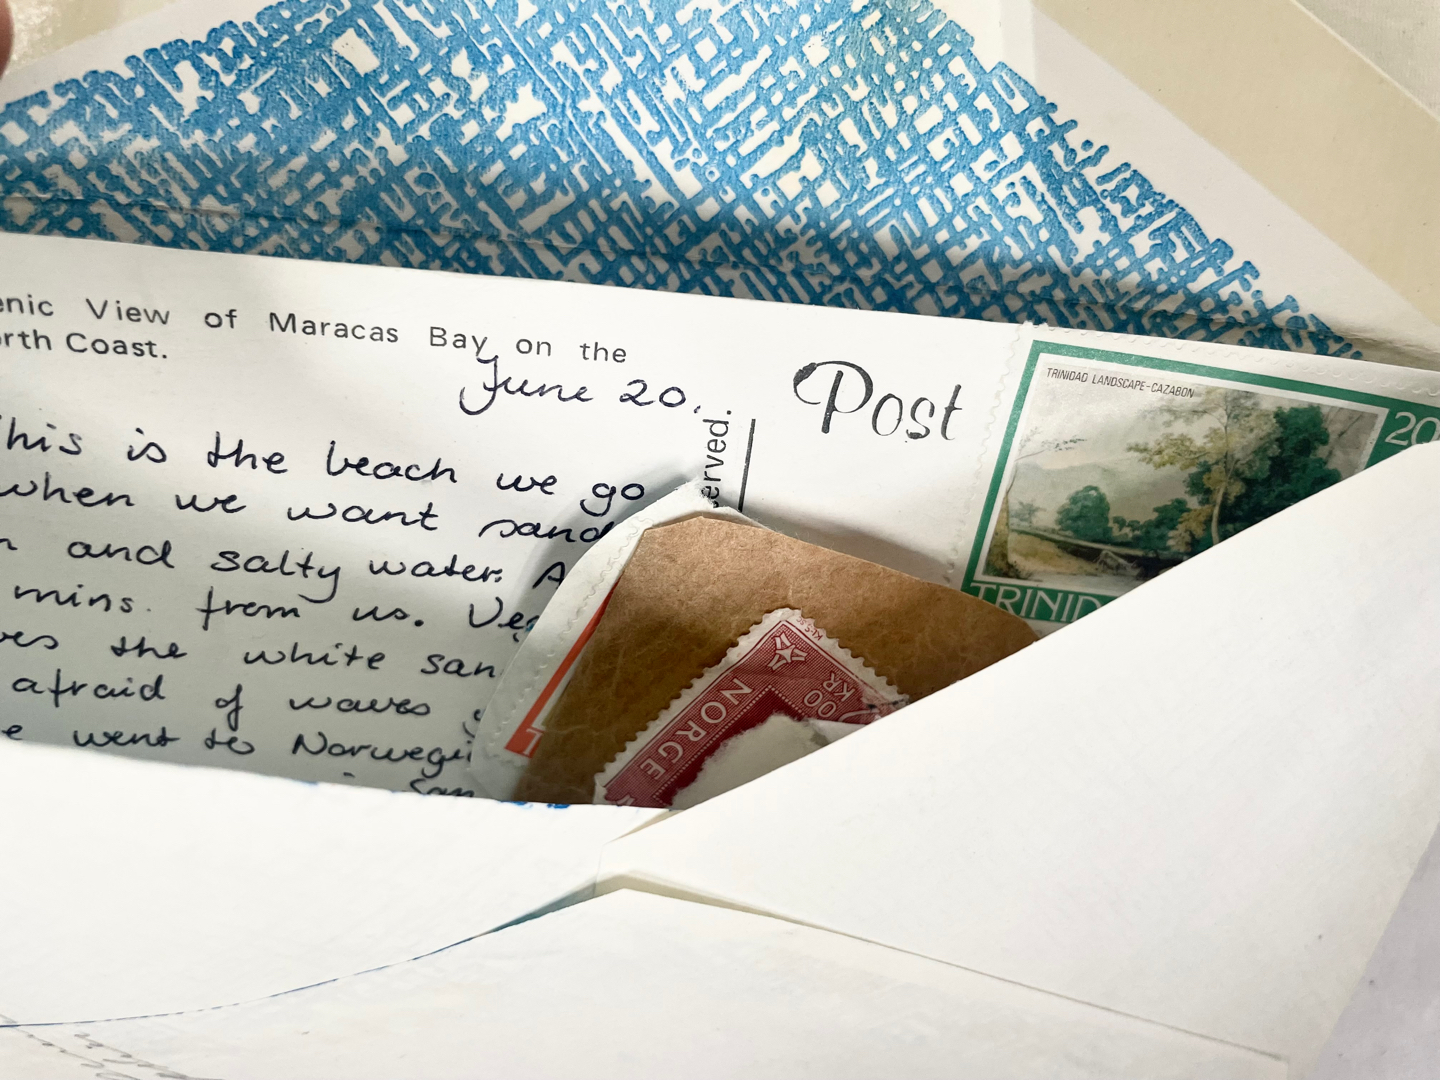 enic View of Maracas Bay on the
orth Coast.
June 20.
This is the beach we go
when we want sand
and salty water. A
mins. from us.
the white san
afraid of waves
went to Norwegi
San
erved.
Post
TRINIDAD LANDSCAPE-CAZABON
20
TRINID
NORGE
00
KR